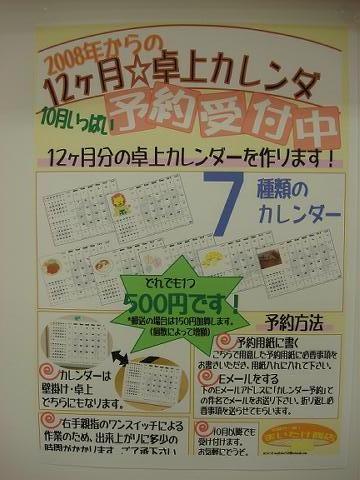 2008年からの
12ヶ月☆卓上カレンダ
10月いっぱい
予約受付中
12ヶ月分の卓上カレンダーを作ります！
7種類の
カレンダー
どれでも1つ
500円です！
*郵送の場合は150円加算します。
(個数によって増額)
予約方法
予約用紙に書く
こちらで用意した予約用紙に必要事項を
お書きいただき、用紙入れに入れて下さい。
Eメールをする
下のEメールアドレスに「カレンダー予約」と
の件名でメールをお送り下さい。折り返し必
要事項を送らせてもらいます。
カレンダーは
壁掛け・卓上
どちらにもなります。
右手親指のワンスイッチによる
作業のため、出来上がりに多少の
時間がかかります。ご了承下さい。
10月以降でも
受け付けます。
お気軽にどうぞ。
まいたけ商店